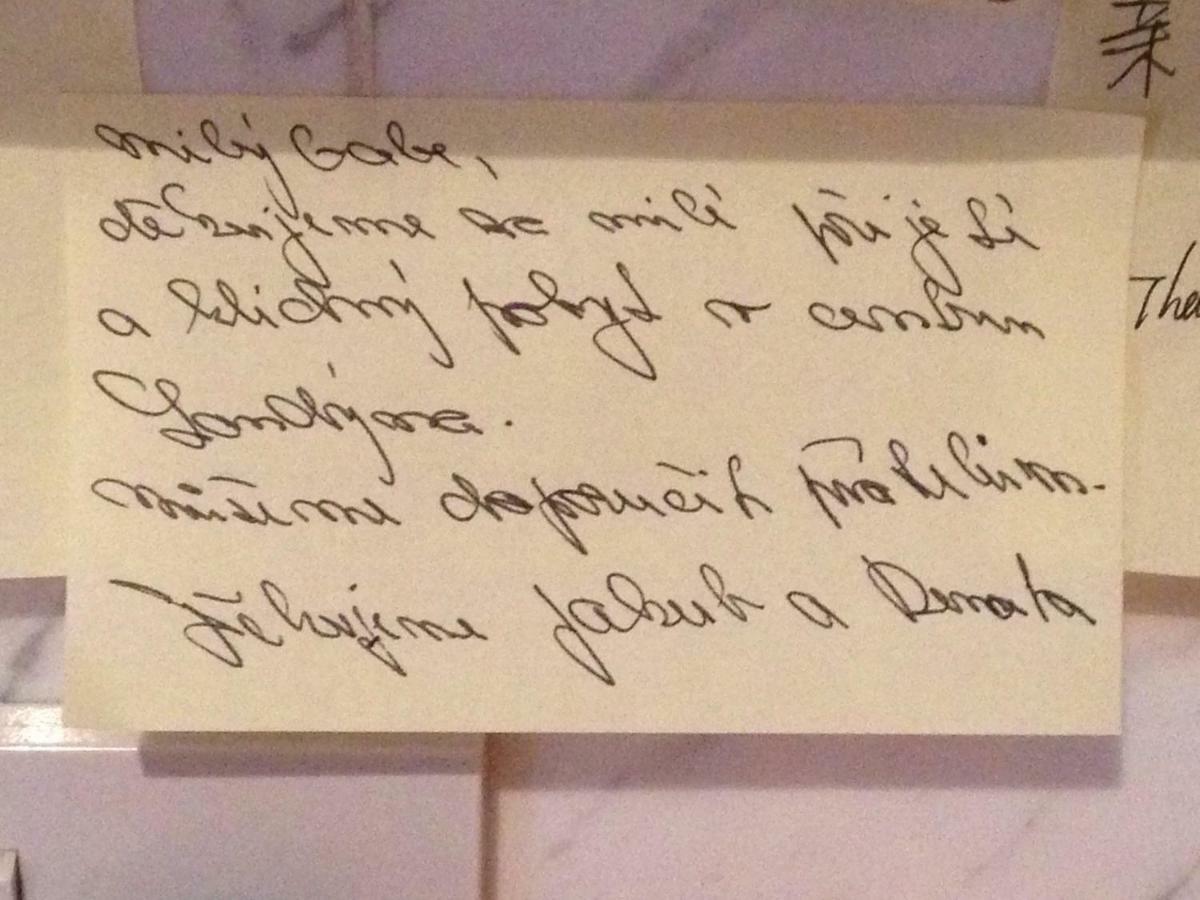 milý Gabe,
děkujeme za milé přijetí
a klidný pobyt v centru
Londýna.
můžeme doporučit přátelům.
Děkujeme Jakub a Renata
The